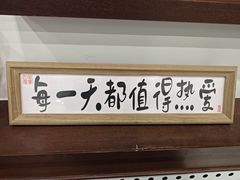 每一天都值得热爱